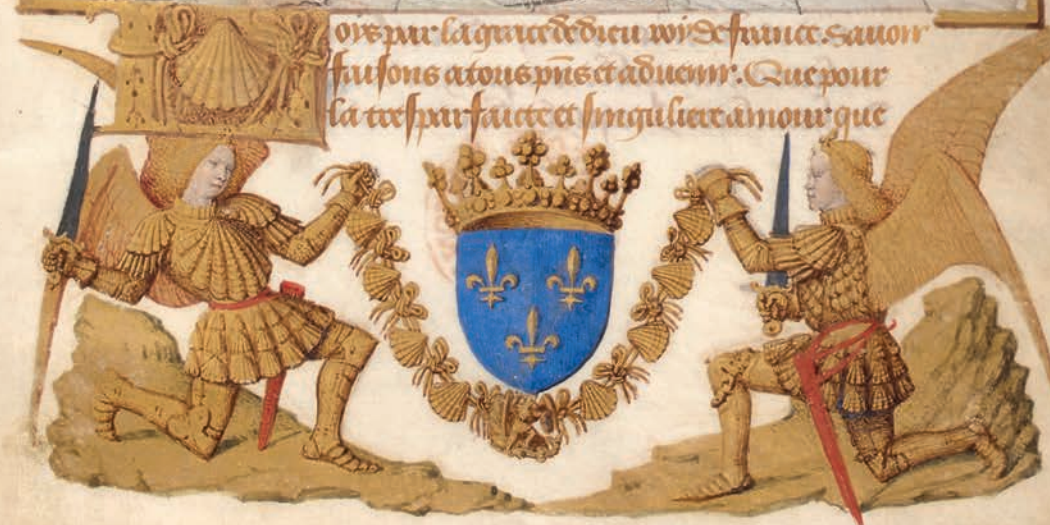 oys par la grace de dieu roy de france. Sauoir
faisons a tous pn̄s et aduenir. Que pour
la tresparfaicte et singuliere amour que